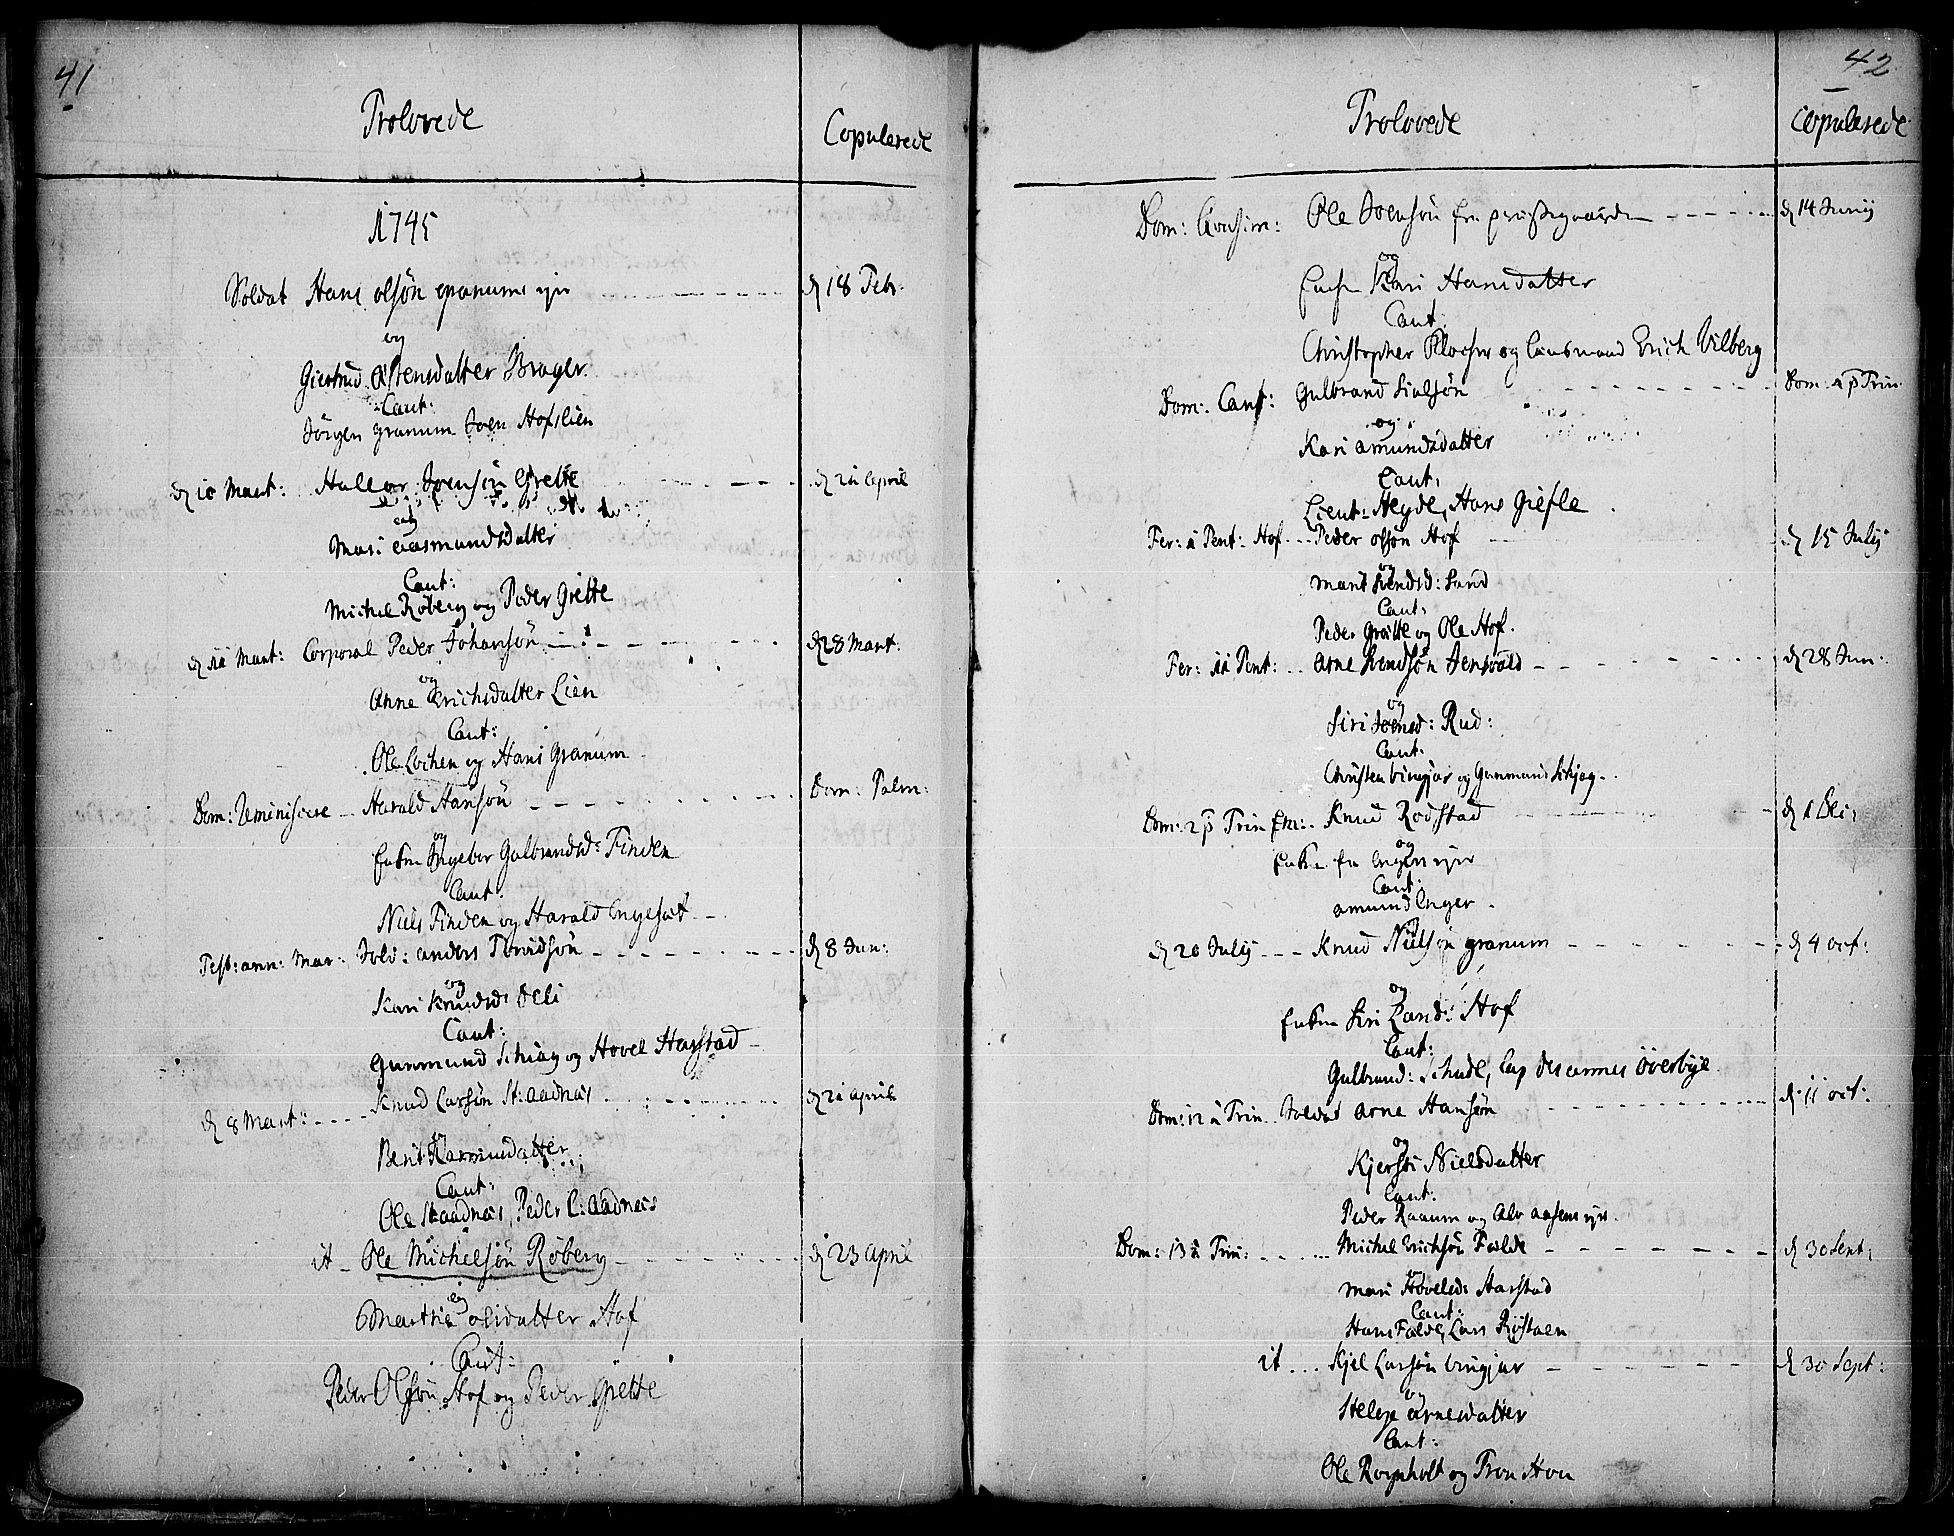 41
Trolovede
Copulerede
1745
Soldat Hans olsön granums ejer d 18 Febr:
og
Giertrud Astensdatter Brager
Caut:
Jörgen granum Joen Hofslien
d 10 Mart: Halvor Joensön Grette d 21 April
og
Mari aasmundsdatter
Caut:
Michel Röberg og Peder Grette
d 11 Mart: Corporal Peder Johansön d 28 Mart:
og
Anne Erichsdatter Lien
Caut:
Ole Lochen og Hans Granum
Dom: Reminiscere Harald Hansön Dom: Palm:
og
Enken Ingebor Gulbrandsd: Finden
Caut:
Niels Finden og Harald Engeset
Fest: ann: Mar: Sold: anders Torridsön d 8 Jun:
og
Kari Knudsd: Deli
Caut:
Gunmund Schiag og Hovel Harstad
d 8 Mart: Knud Larsön St: aadnes d 21 april
og
Berit Rasmusdatter
Caut:
Ole St aadnes, Peder L: aadnes
it Ole Michelsön Röberg d 23 April
og
Marthe olsdatter Hof
Caut:
Peder Olsön Hof og Peder Grette
42
Trolovede
Copulerede
Dom: Ole Joensön fra præstegaarden d 14 Junij
og
Enken Kari Hansdatter
Caut:
Christopher Klocher og Lensmand Erich Vilberg
Dom: Cant: Gulbrand Siulsön Dom: 1 p Trin:
og
Kari amundsdatter
Caut:
Lieut: Heyde, Hans Giefle
Fer: 1 Pent: Hof Peder olsön Hof d 15 Julij
og
Marit Svendsd: Sand
Caut:
Peder Grætte og Ole Hof.
Fer: 11 Pent: Arne Svendsön Jensvold d 28 Jun:
og
Siri Joensd: Rud:
Caut:
Christen Vingjar og Gunmund Schjag
Dom: 2 p Trin Knud Rodstad
og
Enken fra Engen ejer
Caut:
amund Enger
d 20 Julij Knud Nielsön granum d 4 oct:
og
Enken Siri Hof
Caut:
Gulbrand: Schude, Cap des armes Överbye
Dom: 12 à Trin Soldat Arne Hansön d 11 oct:
og
Kjersti Nielsdatter
Caut:
Peder Raaum og Alv aasens ejer
Dom: 13 à Trin: Michel Erichsön Falde d 30 Sept:
og
Mari Hovelsd: Harstad
Caut:
Hans Falde, Lars Röstaen
it Kjel Larsön Vingjar d 30 Sept:
og
Helge Arnesdatter
Caut:
Ole Roynholt og Tron Hou